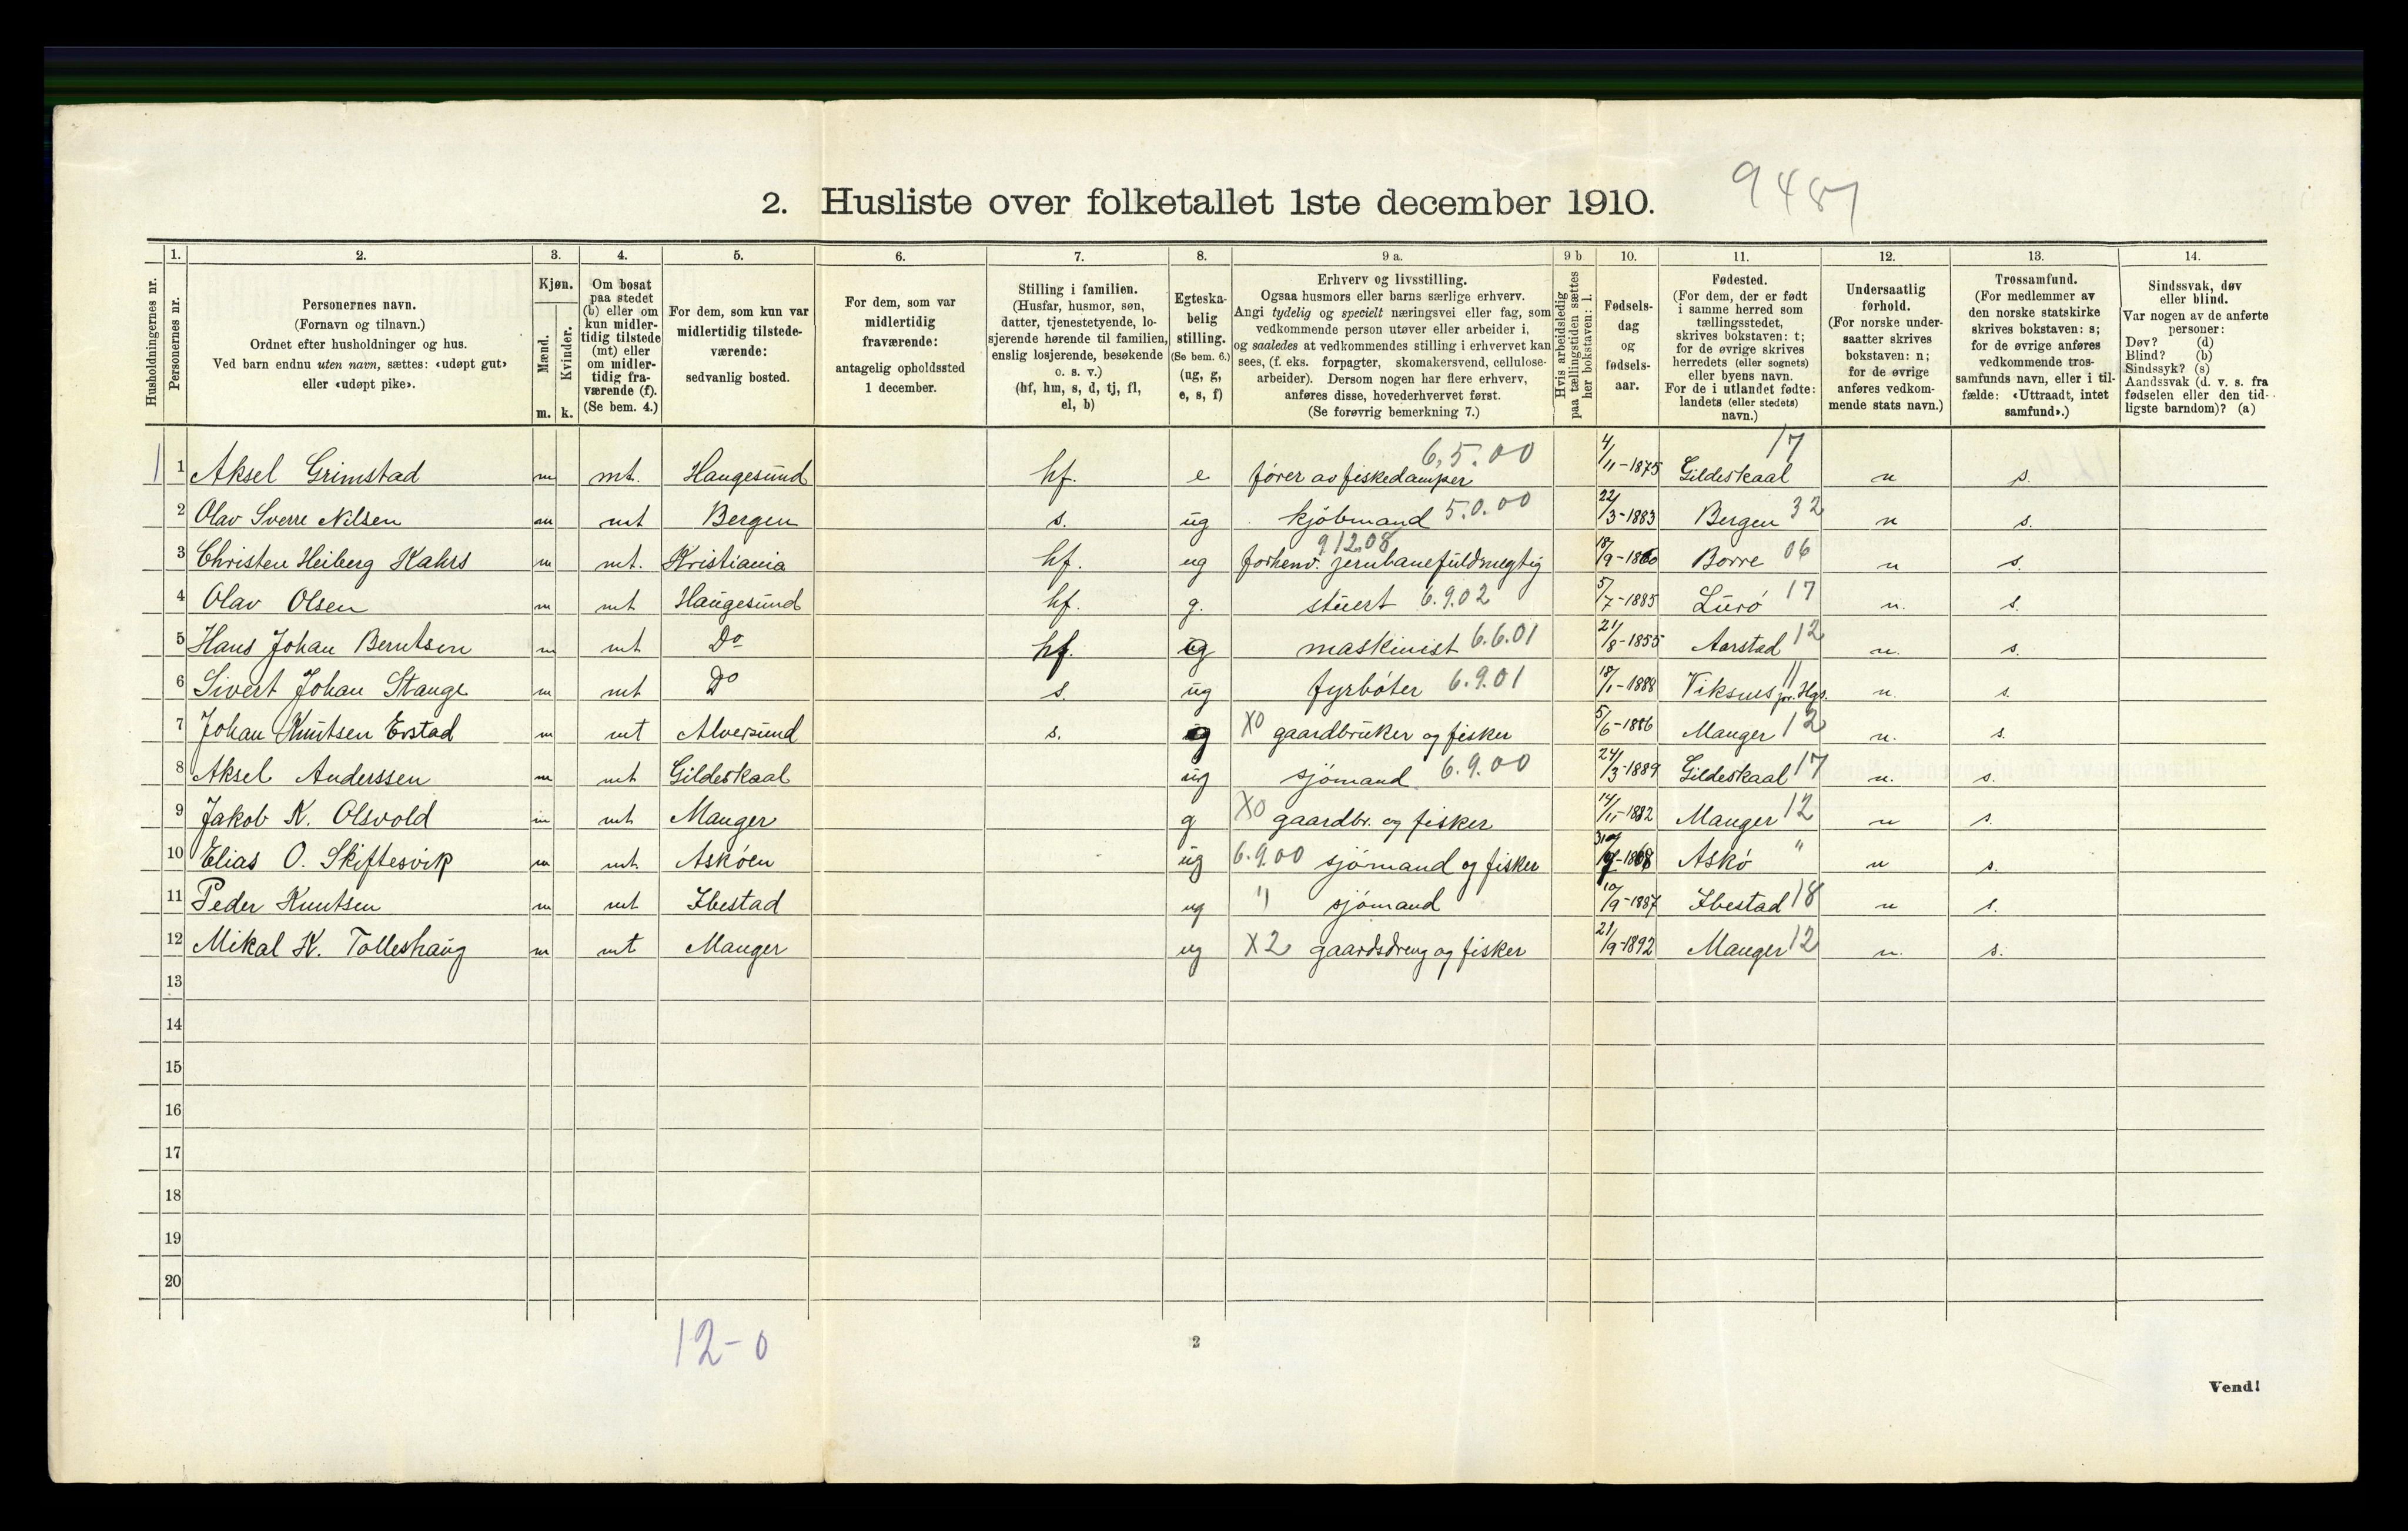 2. Husliste over folketallet 1ste december 1910.
9487
1. 2. 3. 4. 5. 6. 7. 8. 9 a. 9 b 10. 11. 12. 13. 14.
Husholdningernes nr.
Personernes nr.
Personernes navn.
(Fornavn og tilnavn.)
Ordnet efter husholdninger og hus.
Ved barn endnu uten navn, sættes: «udøpt gut»
eller «udøpt pike».
Kjøn.
Mænd.
Kvinder.
m. k.
Om bosat
paa stedet
(b) eller om
kun midler-
tidig tilstede
(mt) eller
om midler-
tidig fra-
værende (f).
(Se bem. 4.)
For dem, som kun var
midlertidig tilstede-
værende:
sedvanlig bosted.
For dem, som var
midlertidig
fraværende:
antagelig opholdssted
1 december.
Stilling i familien.
(Husfar, husmor, søn,
datter, tjenestetyende, lo-
sjerende hørende til familien,
enslig losjerende, besøkende
o. s. v.)
(hf, hm, s, d, tj, fl,
el, b)
Egteska-
belig
stilling.
(Se bem. 6.)
(ug, g,
e, s, f)
Erhverv og livsstilling.
Ogsaa husmors eller barns særlige erhverv.
Angi tydelig og specielt næringsvei eller fag, som
vedkommende person utøver eller arbeider i,
og saaledes at vedkommendes stilling i erhvervet kan
sees, (f. eks. forpagter, skomakersvend, cellulose-
arbeider). Dersom nogen har flere erhverv,
anføres disse, hovederhvervet først.
(Se forøvrig bemerkning 7.)
Hvis arbeidsledig
paa tællingstiden sættes
her bokstaven: l.
Fødsels-
dag
og
fødsels-
aar.
Fødested.
(For dem, der er født
i samme herred som
tællingsstedet,
skrives bokstaven: t;
for de øvrige skrives
herredets (eller sognets)
eller byens navn.
For de i utlandet fødte:
landets (eller stedets)
navn.)
Undersaatlig
forhold.
(For norske under-
saatter skrives
bokstaven: n;
for de øvrige
anføres vedkom-
mende stats navn.)
Trossamfund.
(For medlemmer av
den norske statskirke
skrives bokstaven: s;
for de øvrige anføres
vedkommende tros-
samfunds navn, eller i til-
fælde: «Uttraadt, intet
samfund».)
Sindssvak, døv
eller blind.
Var nogen av de anførte
personer:
Døv? (d)
Blind? (b)
Sindssyk? (s)
Aandssvak (d. v. s. fra
fødselen eller den tid-
ligste barndom)? (a)
1 1 Aksel Grimstad m mt. Haugesund hf. e fører av fiskedamper 6.5.00 4/11-1875 Gildeskaal 17 n s.
2 Olav Sverre Nilsen m mt Bergen s. ug kjøbmand 5.0.00 22/3-1883 Bergen 32 n s.
3 Christen Heiberg Kahrs m mt. Kristiania hf. ug forhenv. jernbanefuldmegtig 91208 18/9-1860 Borre 06 n s.
4 Olav Olsen m mt Haugesund hf. g. stuert 6.9.02 5/7-1885 Lurø 17 n. s.
5 Hans Johan Berntsen m mt Do hf. g maskinist 6.6.01 21/8-1855 Aarstad 12 n. s.
6 Sivert Johan Stange m mt Do s. ug fyrbøter 6.9.01 18/1-1888 Viksnes pr. Hgs. 11 n. s.
7 Johan Knutsen Erstad m mt Alversund s. g X0 gaardbruker og fisker 5/6-1886 Manger 12 n. s.
8 Aksel Anderssen m mt Gildeskaal ug sjømand 6.9.00 24/3-1889 Gildeskaal 17 n. s.
9 Jakob K. Olsvold m mt Manger g X0 gaardbr. og fisker 14/11-1882 Manger 12 n s.
10 Elias O. Skiftesvik m mt. Askøen ug 6.9.00 sjømand og fisker Askø " n s.
11 Peder Knutsen m mt Ibestad ug " sjømand 10/9-1887 Ibestad 18 n s.
12 Mikal K. Tolleshaug m mt Manger ug X2 gaardsdreng og fisker 21/9-1892 Manger 12 n. s.
13
14
15
16
17
18
19
20
12-0
2
Vend!